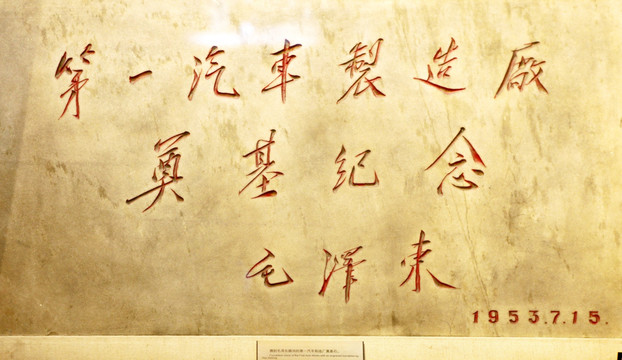 第一汽車製造廠
奠基纪念
毛澤東
1953.7.15.